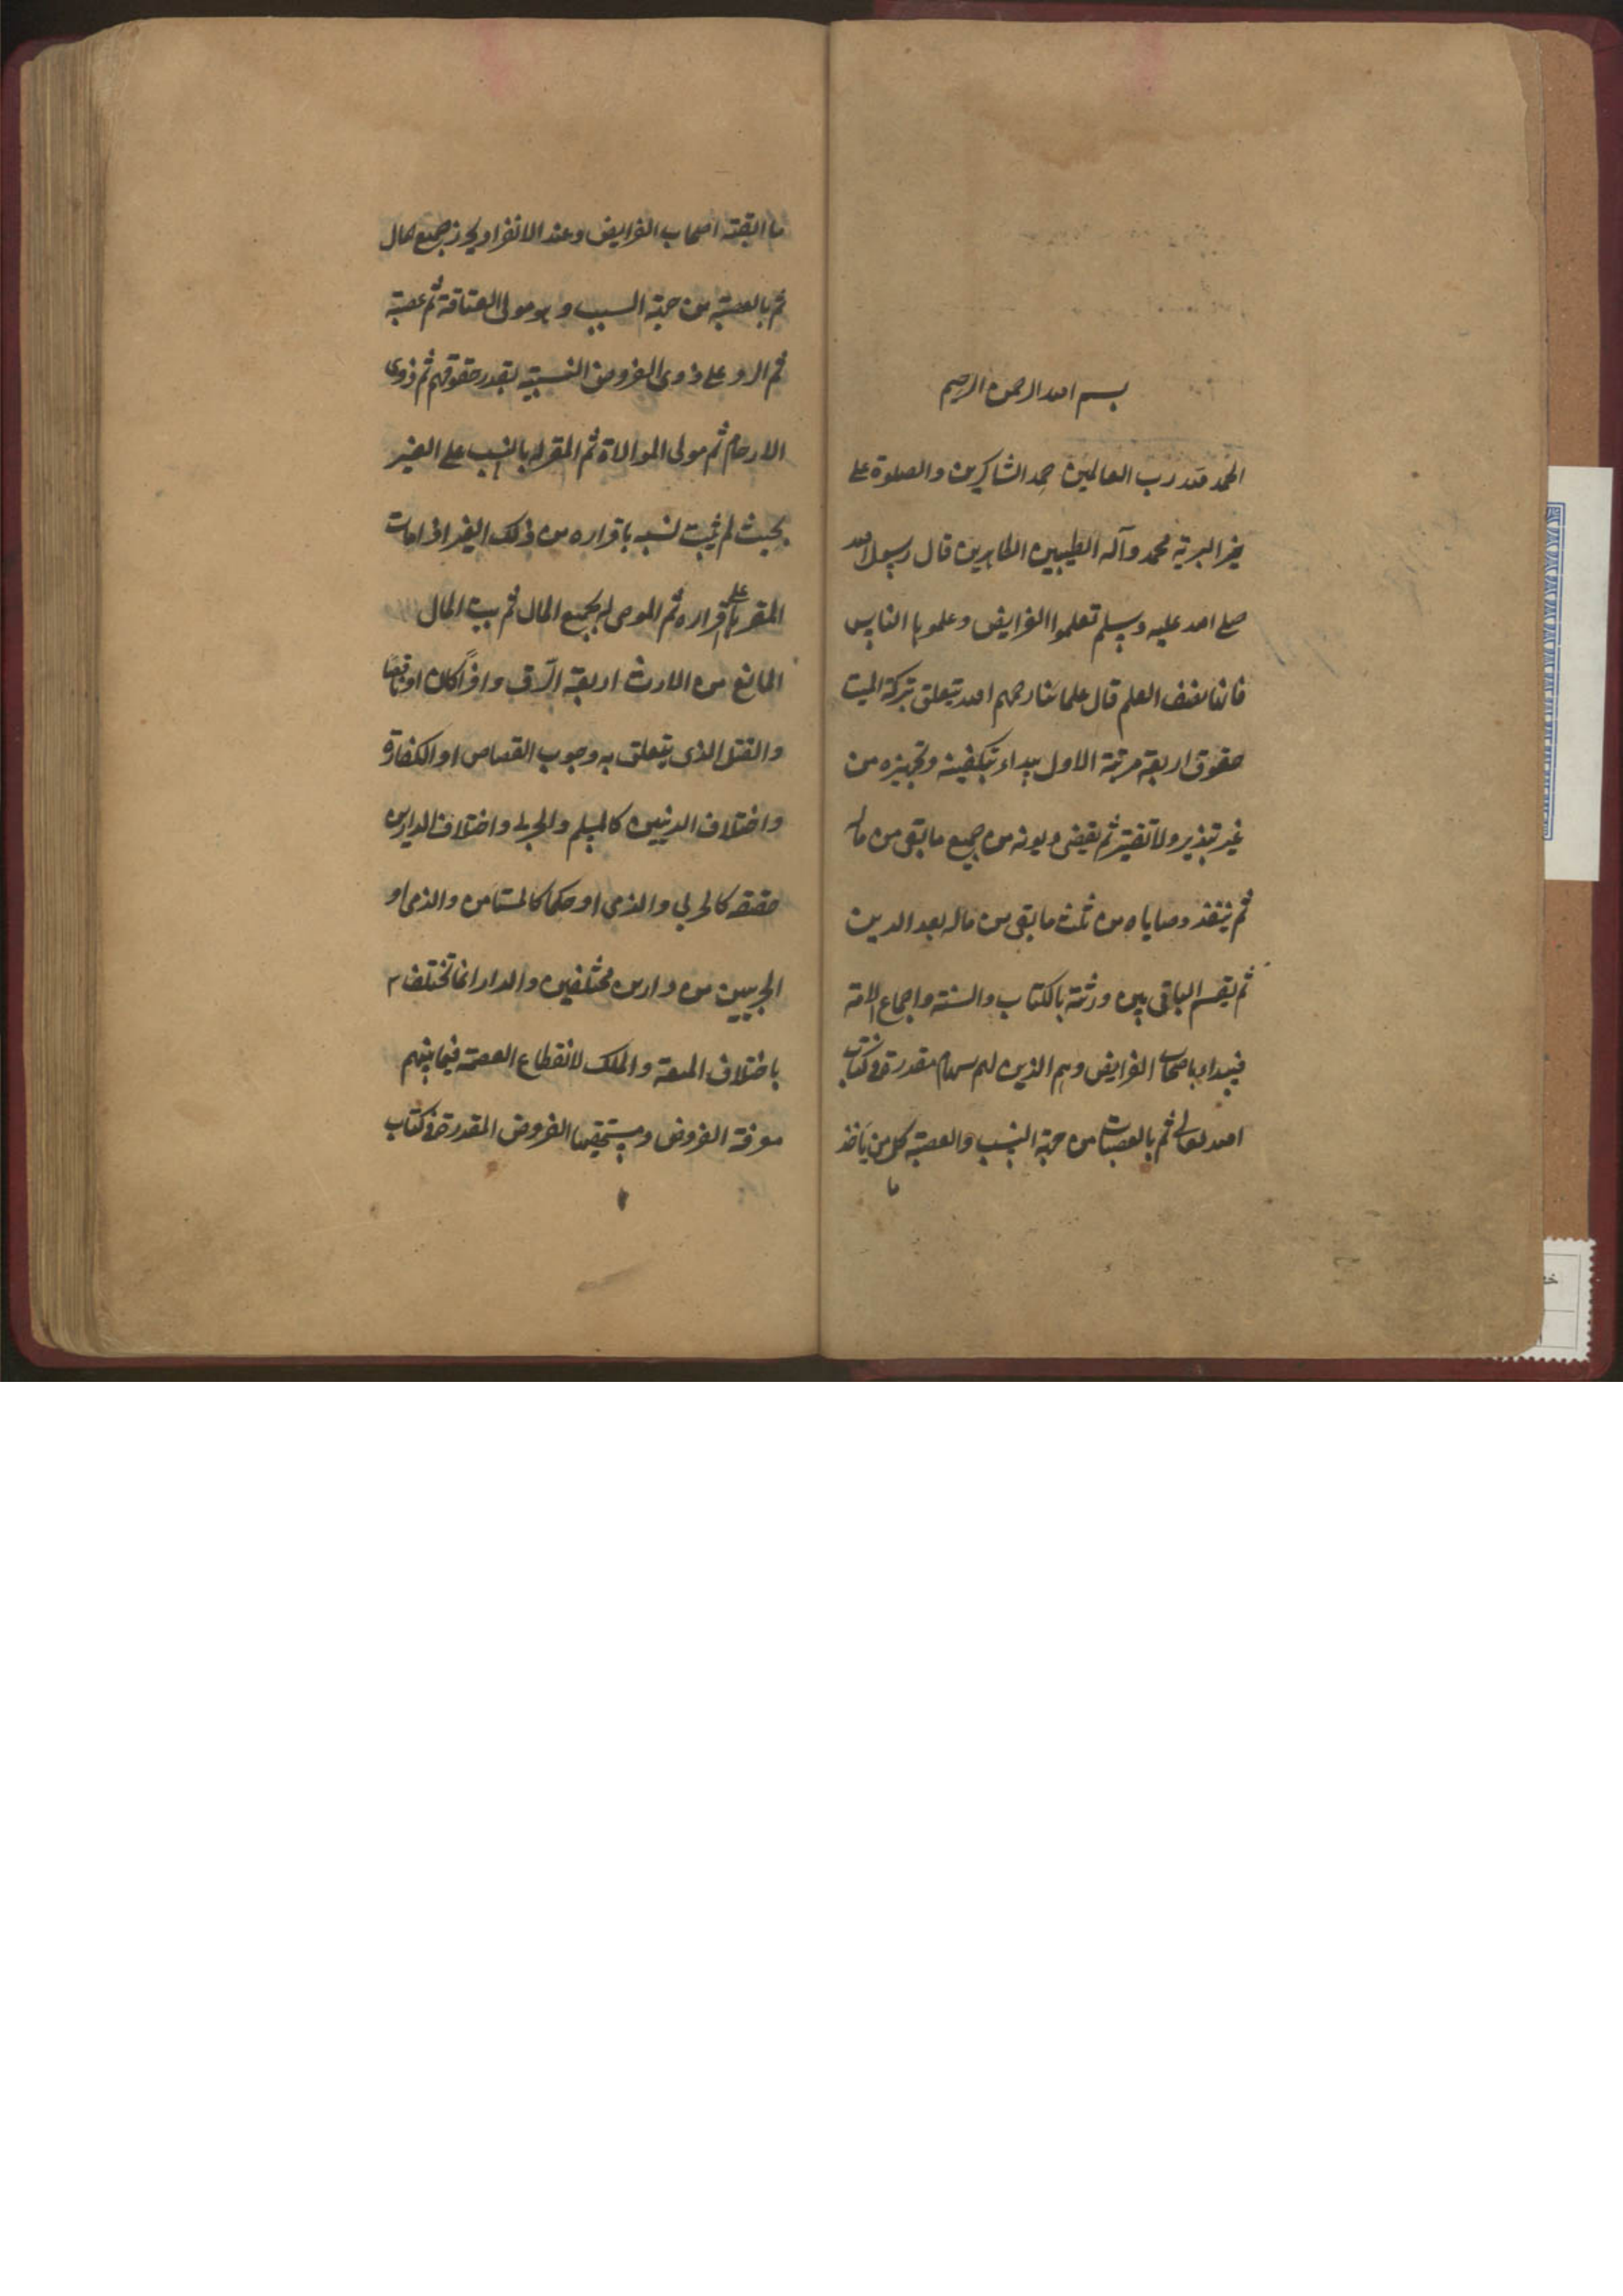 بسم الله الرحمن الرحيم
الحمد لله رب العالمين حمد الشاكرين والصلوة على
خير البرية محمد وآله الطيبين الطاهرين قال رسول الله
صلى الله عليه وسلم تعلموا الفرايض وعلموها الناس
فانها نصف العلم قال علمائنا رحمهم الله يتعلق بتركة الميت
حقوق اربعة مرتبة الاول يبداء بتكفينه وتجهيزه من
غير تبذير ولا تقتير ثم يقضى ديونه من جميع ما بقى من ماله
ثم ينفذ وصاياه من ثلث ما بقى من ماله بعد الدين
ثم يقسم الباقى بين ورثته بالكتاب والسنة واجماع الامة
فيبداء باصحاب الفرايض وهم الذين لهم سهام مقدرة فى كتاب
الله تعالى ثم بالعصبات من جهة النسب والعصبة كل من يأخذ
ما
ما ابقته اصحاب الفرايض وعند الانفراد يحرز جميع المال
ثم بالعصبة من جهة السبب وهو مولى العتاقة ثم عصبته
ثم الرد على ذوى الفروض النسبية بقدر حقوقهم ثم ذوى
الارحام ثم مولى الموالاة ثم المقر له بالنسب على الغير
بحيث لم يثبت نسبه باقراره من ذلك الغير اذا مات
المقر على اقراره ثم الموصى له بجميع المال ثم بيت المال
المانع من الارث اربعة الرق وافرا كان او ناقصا
والقتل الذى يتعلق به وجوب القصاص او الكفارة
واختلاف الدينين كالمسلم والحربى واختلاف الدارين
حقيقة كالحربي والذمى او حكما كالمستامن والذمى او
الحربيين من دارين مختلفين والدار انما تختلف
باختلاف المنعة والملك لانقطاع العصمة فيما بينهم
معرفة الفروض ومستحقيها الفروض المقدرة فى كتاب